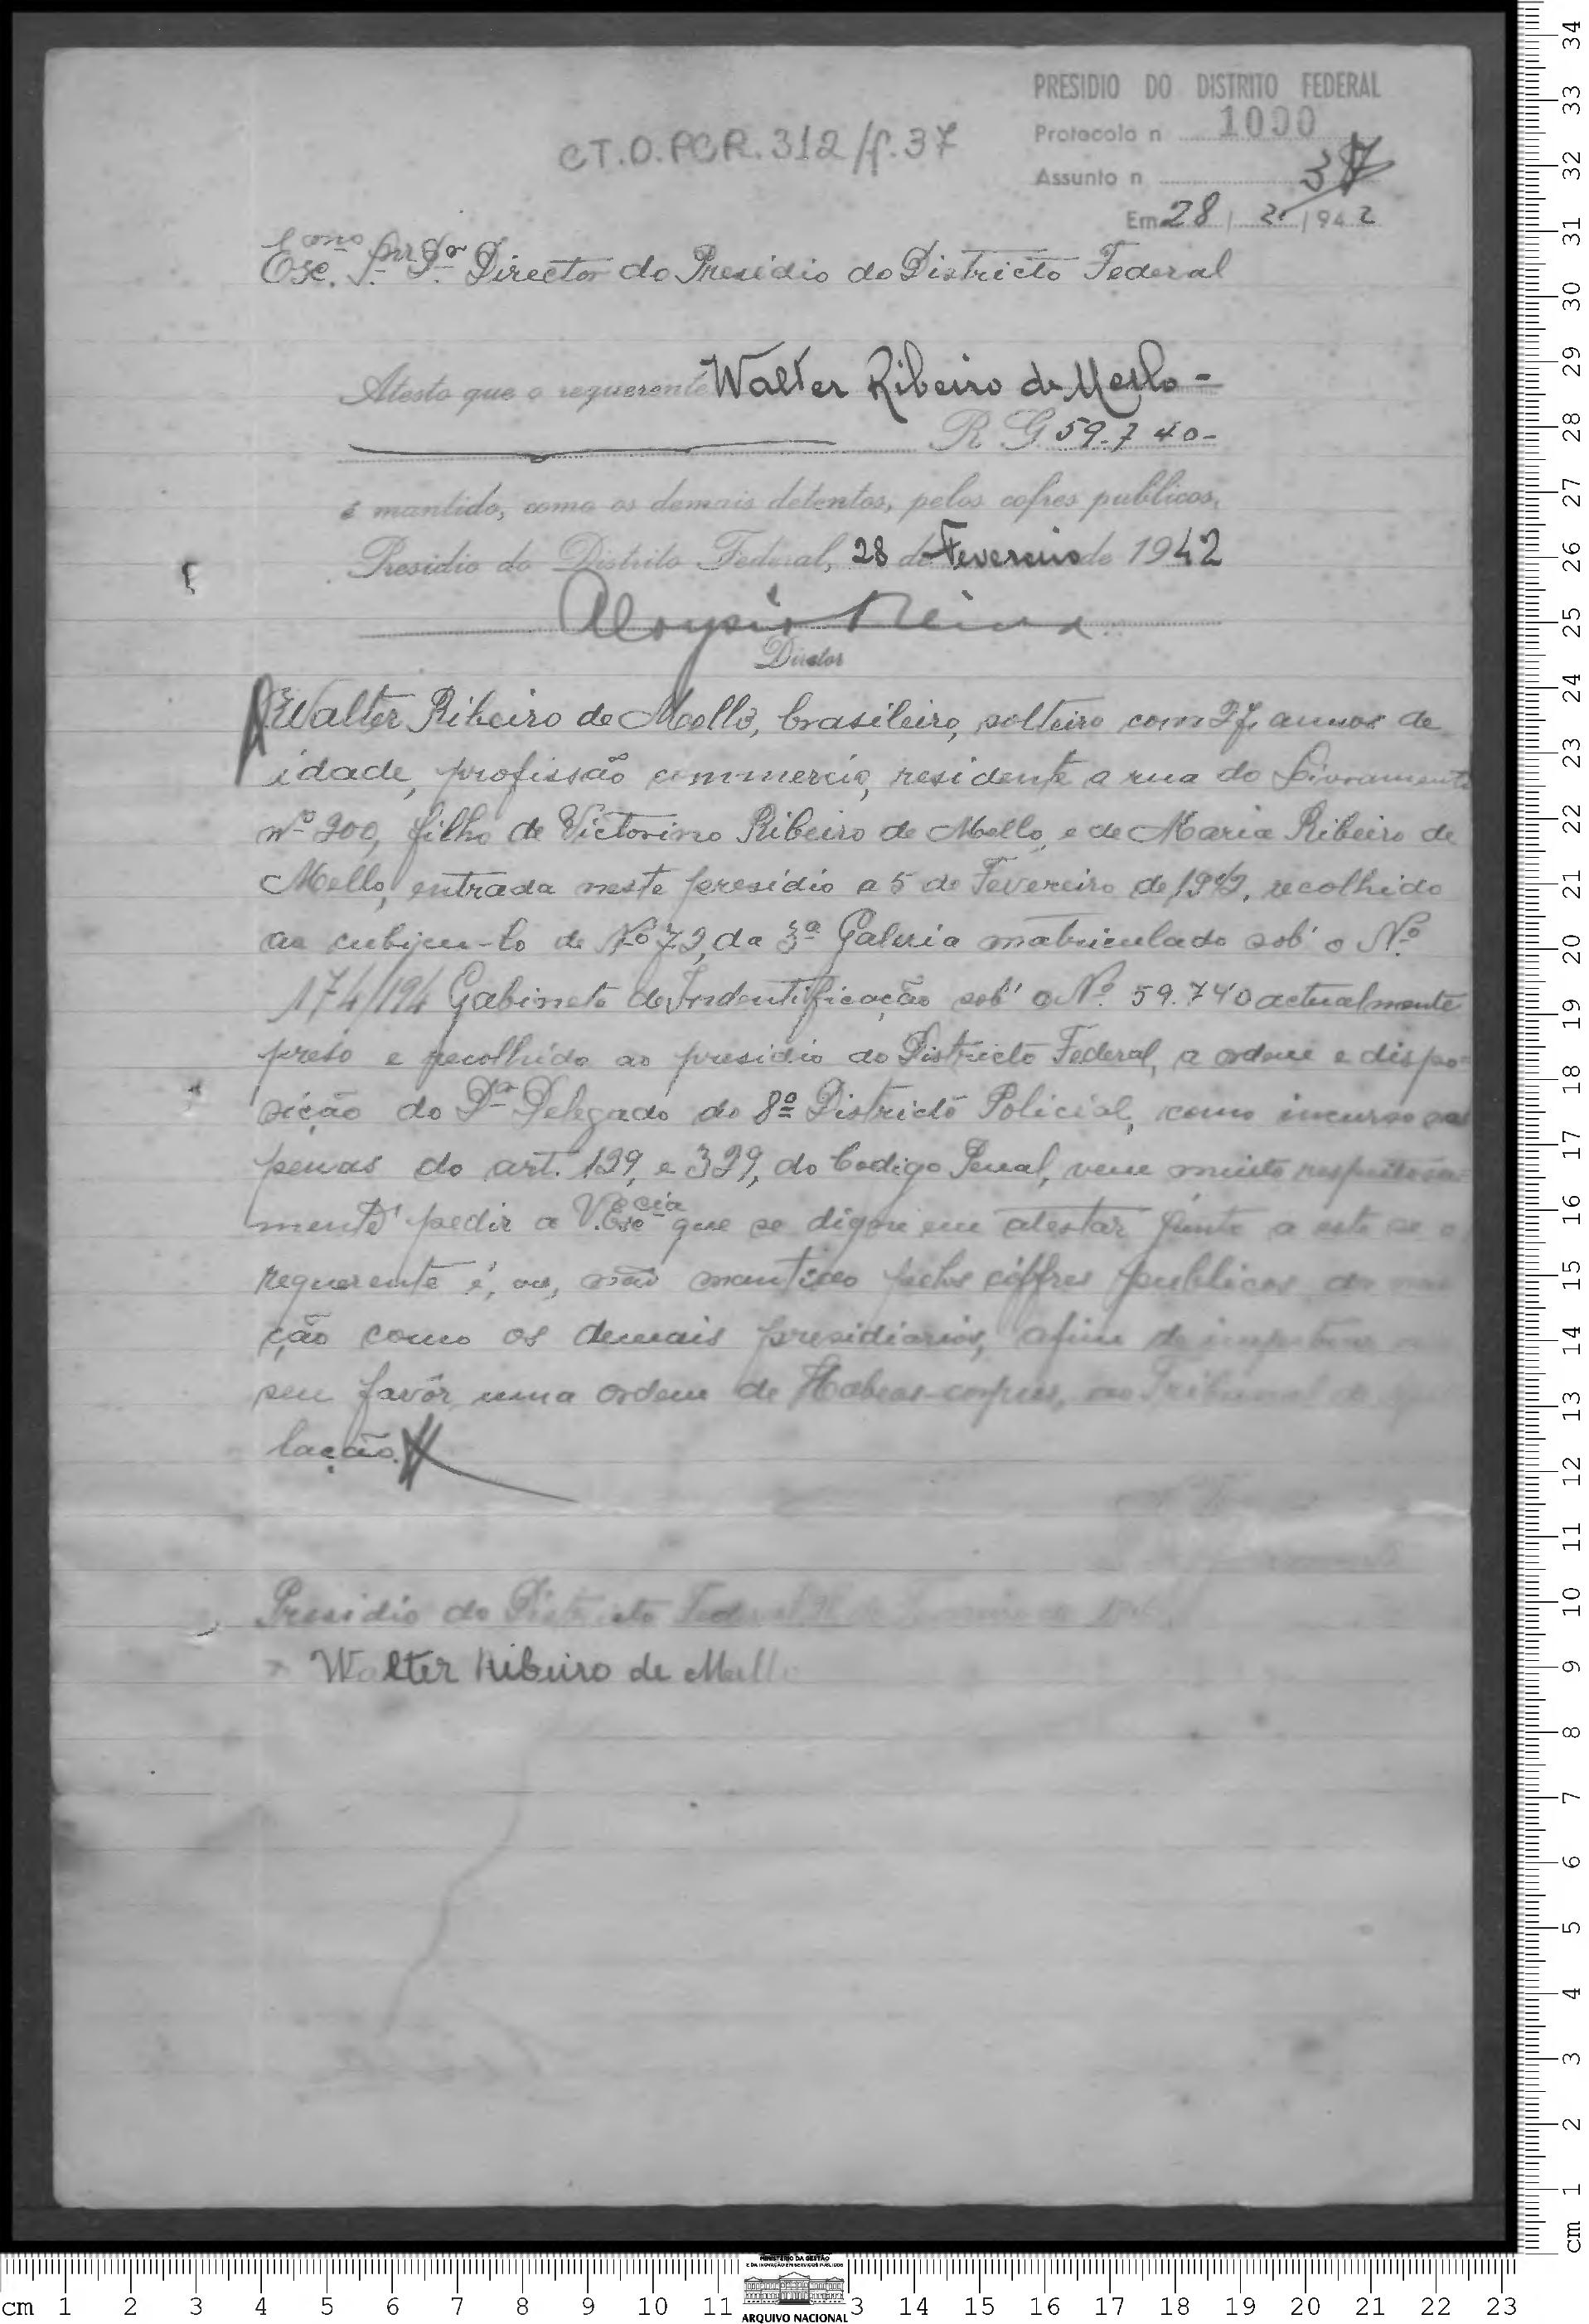 PRESIDIO DO DISTRITO FEDERAL
Protocolo n 1000
Assunto n 37
Em 28 / 2 / 1942
CT.O.PCR.312/f.37
Exc.mo Snr. Dr. Director do Presidio do Districto Federal
Atesto que o requerente Walter Ribeiro de Mello -
R G 59.740-
é mantido, como os demais detentos, pelos cofres publicos.
Presidio do Distrito Federal, 28 de Fevereiro de 1942
Diretor
Walter Ribeiro de Mello, brasileiro, solteiro com 27, annos de
idade, profissão commercio, residente a rua do Livramento
nº 200, filho de Victorino Ribeiro de Mello, e de Maria Ribeiro de
Mello, entrada neste presidio a 5 de Fevereiro de 1942, recolhido
ao de Nº 72, da 3ª Galeria matriculado sob' o Nº
174/194 Gabinete de Indentificação sob' o Nº 59.740 actualmente
preso e recolhido ao presidio do Districto Federal, a ordem e dispo=
sição do Dr Delegado do 8º Districto Policial, como incurso nas
penas do art. 129, e 329, do Codigo Penal, vem muito respeitosa=
mente pedir a V. Excia que se digne em atestar junto a este se o
requerente é, ou, não mantido pelos coffres publicos da
ção como os demais presidiarios, afim de impetrar
seu favôr uma ordem de Habeas-corpus, ao Tribunal de
lação.
Presidio do Districto Federal
Walter Ribeiro de Mello
cm 1 2 3 4 5 6 7 8 9 10 11 3 14 15 16 17 18 19 20 21 22 23
MINISTÉRIO DA GESTÃO
E DA INOVAÇÃO EM SERVIÇOS PÚBLICOS
ARQUIVO NACIONAL
cm 1 2 3 4 5 6 7 8 9 10 11 12 13 14 15 16 17 18 19 20 21 22 23 24 25 26 27 28 29 30 31 32 33 34